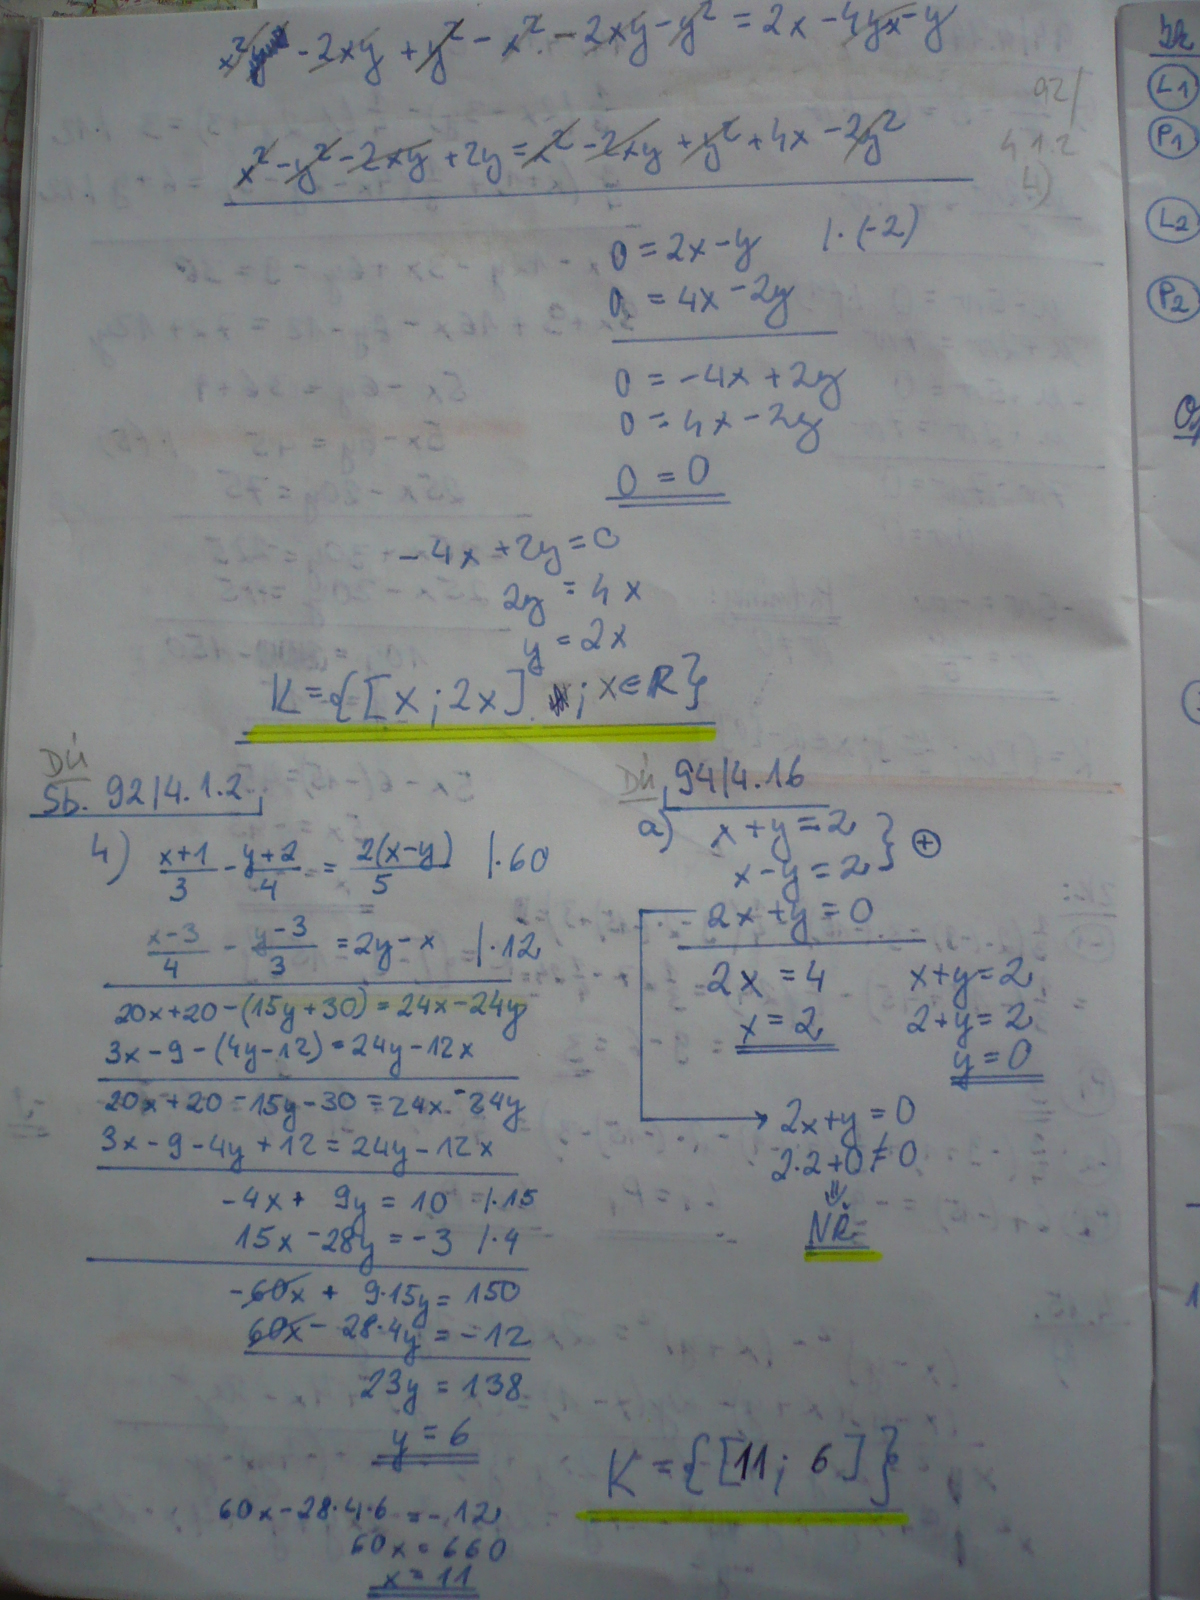 x² - 2xy + y² - x² - 2xy - y² = 2x - 4yx - y
x² - y² - 2xy + 2y = x² - 2xy + y² + 4x - 2y²
0 = 2x - y |·(-2)
0 = 4x - 2y
0 = -4x + 2y
0 = 4x - 2y
0 = 0
-4x + 2y = 0
2y = 4x
y = 2x
K = {[x; 2x]; x∈R}
DÚ
Sb. 92/4.1.2
4) (x+1)/3 - (y+2)/4 = 2(x-y)/5 |·60
(x-3)/4 - (y-3)/3 = 2y - x |·12
20x+20-(15y+30) = 24x-24y
3x-9-(4y-12) = 24y-12x
20x+20-15y-30 = 24x-24y
3x-9-4y+12 = 24y-12x
-4x + 9y = 10 |·15
15x - 28y = -3 |·4
-60x + 9·15y = 150
60x - 28·4y = -12
23y = 138
y = 6
60x - 28·4·6 = -12
60x = 660
x = 11
DÚ 94/4.16
a) x+y=2 } ⊕
x-y=2
2x+y=0
2x = 4
x = 2
x+y=2
2+y=2
y=0
2x+y=0
2·2+0≠0
⇓
NŘ
K = {[11; 6]}
92/
4.1.2
4)
L1
P1
L2
P2